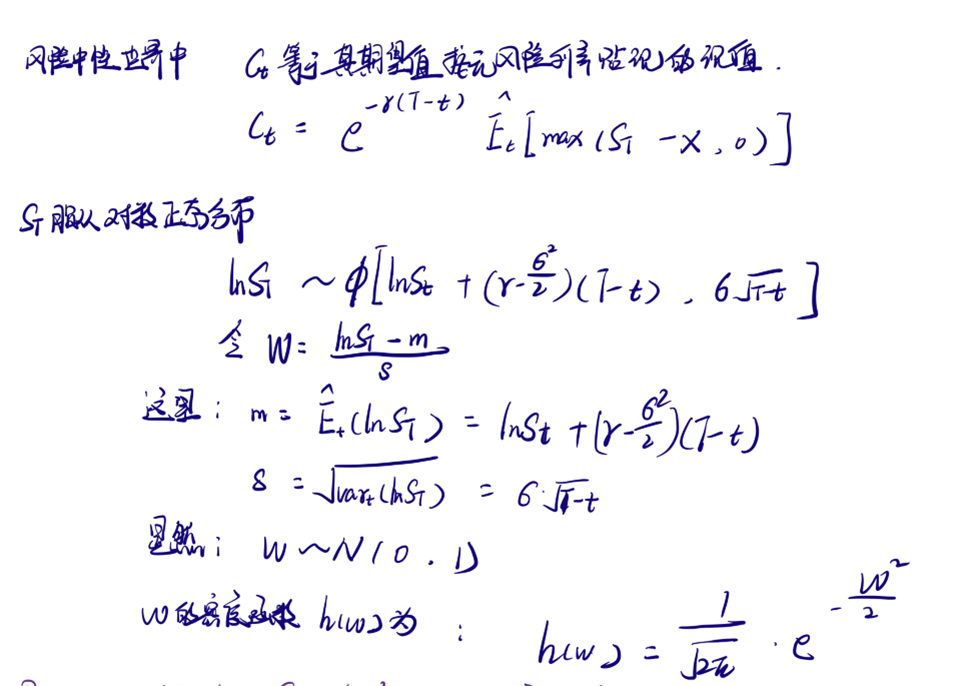 风险中性世界中 Ct 等于其期望值按无风险利率贴现的现值.
Ct = e^{-r(T-t)} Êt[max(S_T - X, 0)]
S_T服从对数正态分布
lnS_T ~ φ[lnSt + (r - σ²/2)(T-t), σ√(T-t)]
令 W = (lnS_T - m)/s
这里: m = Êt(lnS_T) = lnSt + (r - σ²/2)(T-t)
s = √(vart(lnS_T)) = σ·√(T-t)
显然: W ~ N(0, 1)
W的密度函数 h(w)为: h(w) = 1/√(2π) · e^{-w²/2}